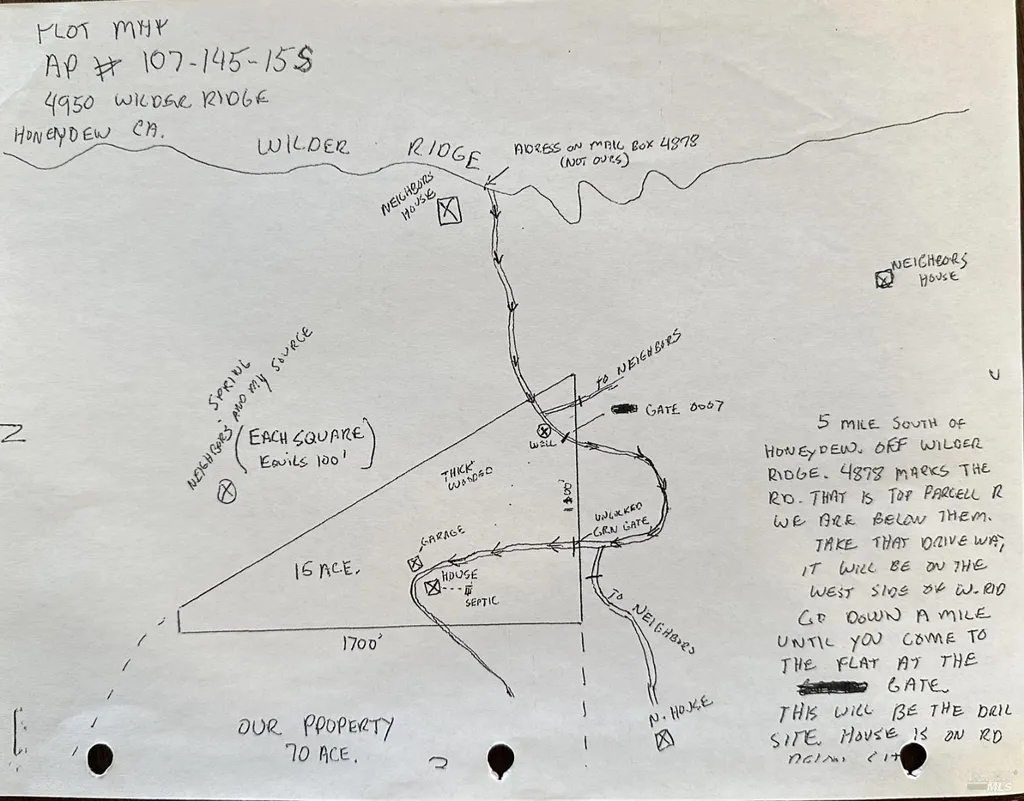 PLOT MAP
AP # 107-145-15S
4950 WILDER RIDGE
HONEYDEW CA.
WILDER RIDGE
ADRESS ON MAIL BOX 4878
(NOT OURS)
NEIGHBORS
HOUSE
NEIGHBORS
HOUSE
TO NEIGHBORS
GATE 0007
WELL
NEIGHBORS' SPRING
AND MY SOURCE
(EACH SQUARE
EQUILS 100')
THICK
WOODED
UNLOCKED
GRN GATE
GARAGE
HOUSE
SEPTIC
15 ACE.
1700'
TO NEIGHBORS
N. HOUSE
OUR PROPERTY
70 ACE.
5 MILE SOUTH OF
HONEYDEW. OFF WILDER
RIDGE. 4878 MARKS THE
RD. THAT IS TOP PARCELL R
WE ARE BELOW THEM.
TAKE THAT DRIVE WAY,
IT WILL BE ON THE
WEST SIDE OF W.RID
GO DOWN A MILE
UNTIL YOU COME TO
THE FLAT AT THE
GATE.
THIS WILL BE THE DRIL
SITE. HOUSE IS ON RD
MLS